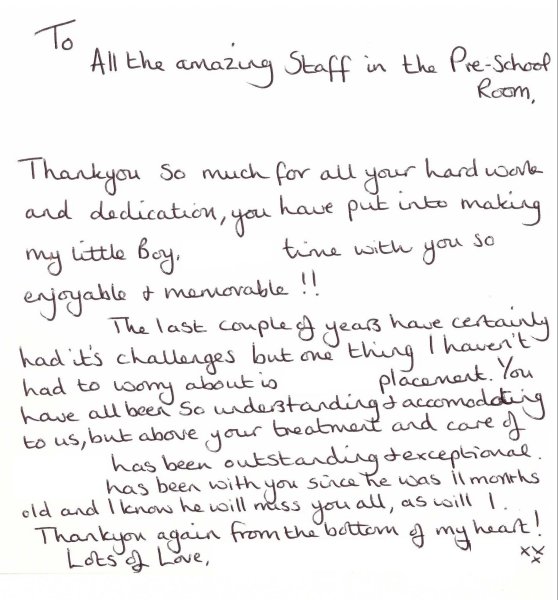 To
All the amazing Staff in the Pre-School
Room,
Thankyou so much for all your hard work
and dedication, you have put into making
my little Boy, time with you so
enjoyable & memorable !!
The last couple of years have certainly
had it's challenges but one thing I haven't
had to worry about is placement. You
have all been so understanding & accomodating
to us, but above your treatment and care of
has been outstanding & exceptional.
has been with you since he was 11 months
old and I know he will miss you all, as will I.
Thankyou again from the bottom of my heart!
Lots of Love, xxx